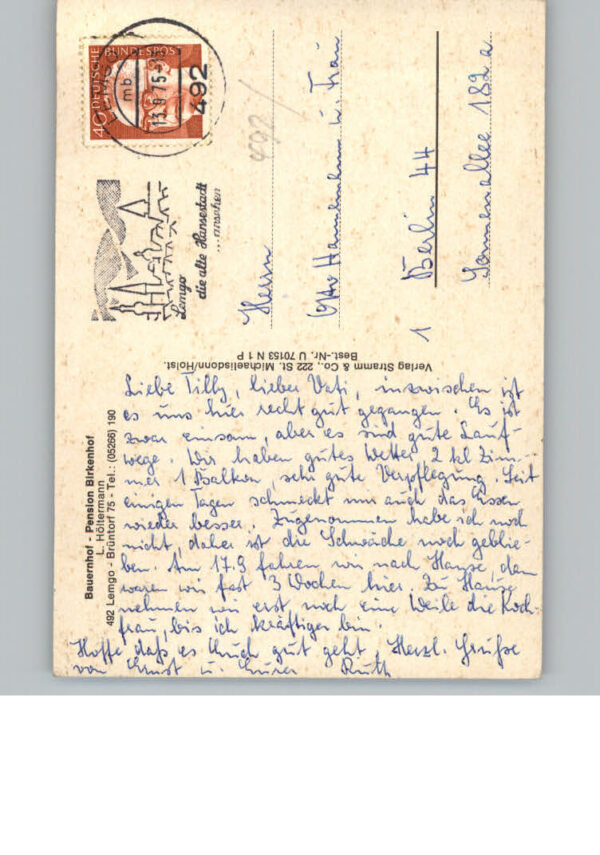 DEUTSCHE BUNDESPOST
40
LEMGO
mb
13.9.75
492
Lemgo
die alte Hansestadt
...ansehen
492/
Herrn
Otto u. Frau
1 Berlin 44
Sonnenallee 182a
Verlag Stramm & Co., 222 St. Michaelisdonn/Holst.
Best.-Nr. U 70153 N 1 P
Bauernhof - Pension Birkenhof
L. Höltermann
492 Lemgo - Brüntorf 75 - Tel.: (05266) 190
Liebe Tilly, lieber Vati, inzwischen ist
es uns hier recht gut gegangen. Es ist
zwar einsam, aber es sind gute Lauf-
wege. Wir haben gutes Wetter 2 kl Zim-
mer 1 Balkon, sehr gute Verpflegung. Seit
einigen Tagen schmeckt mir auch das Essen
wieder besser. Zugenommen habe ich noch
nicht, daher ist die Schwäche noch geblie-
ben. Am 17.9 fahren wir nach Hause, dan
waren wir fast 3 Wochen hier. Zu Hause
nehmen wir erst noch eine Weile die Koch-
frau, bis ich kräftiger bin.
Hoffe daß es Euch gut geht, Herzl. Grüße
von Ernst u. Eurer Ruth